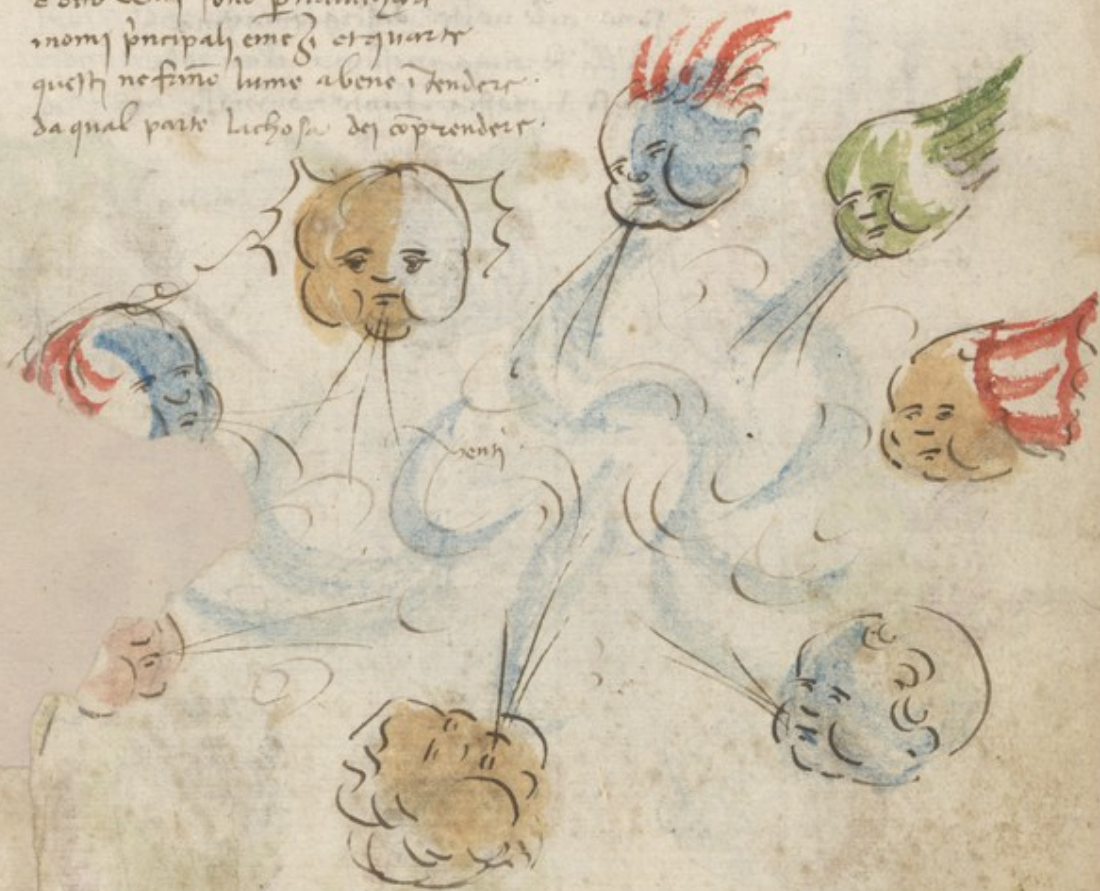 inomi pncipali emeçi et quarte
questi ne frāno lume abene ītendere
da qual parte lachosa dei cōprendere
venti